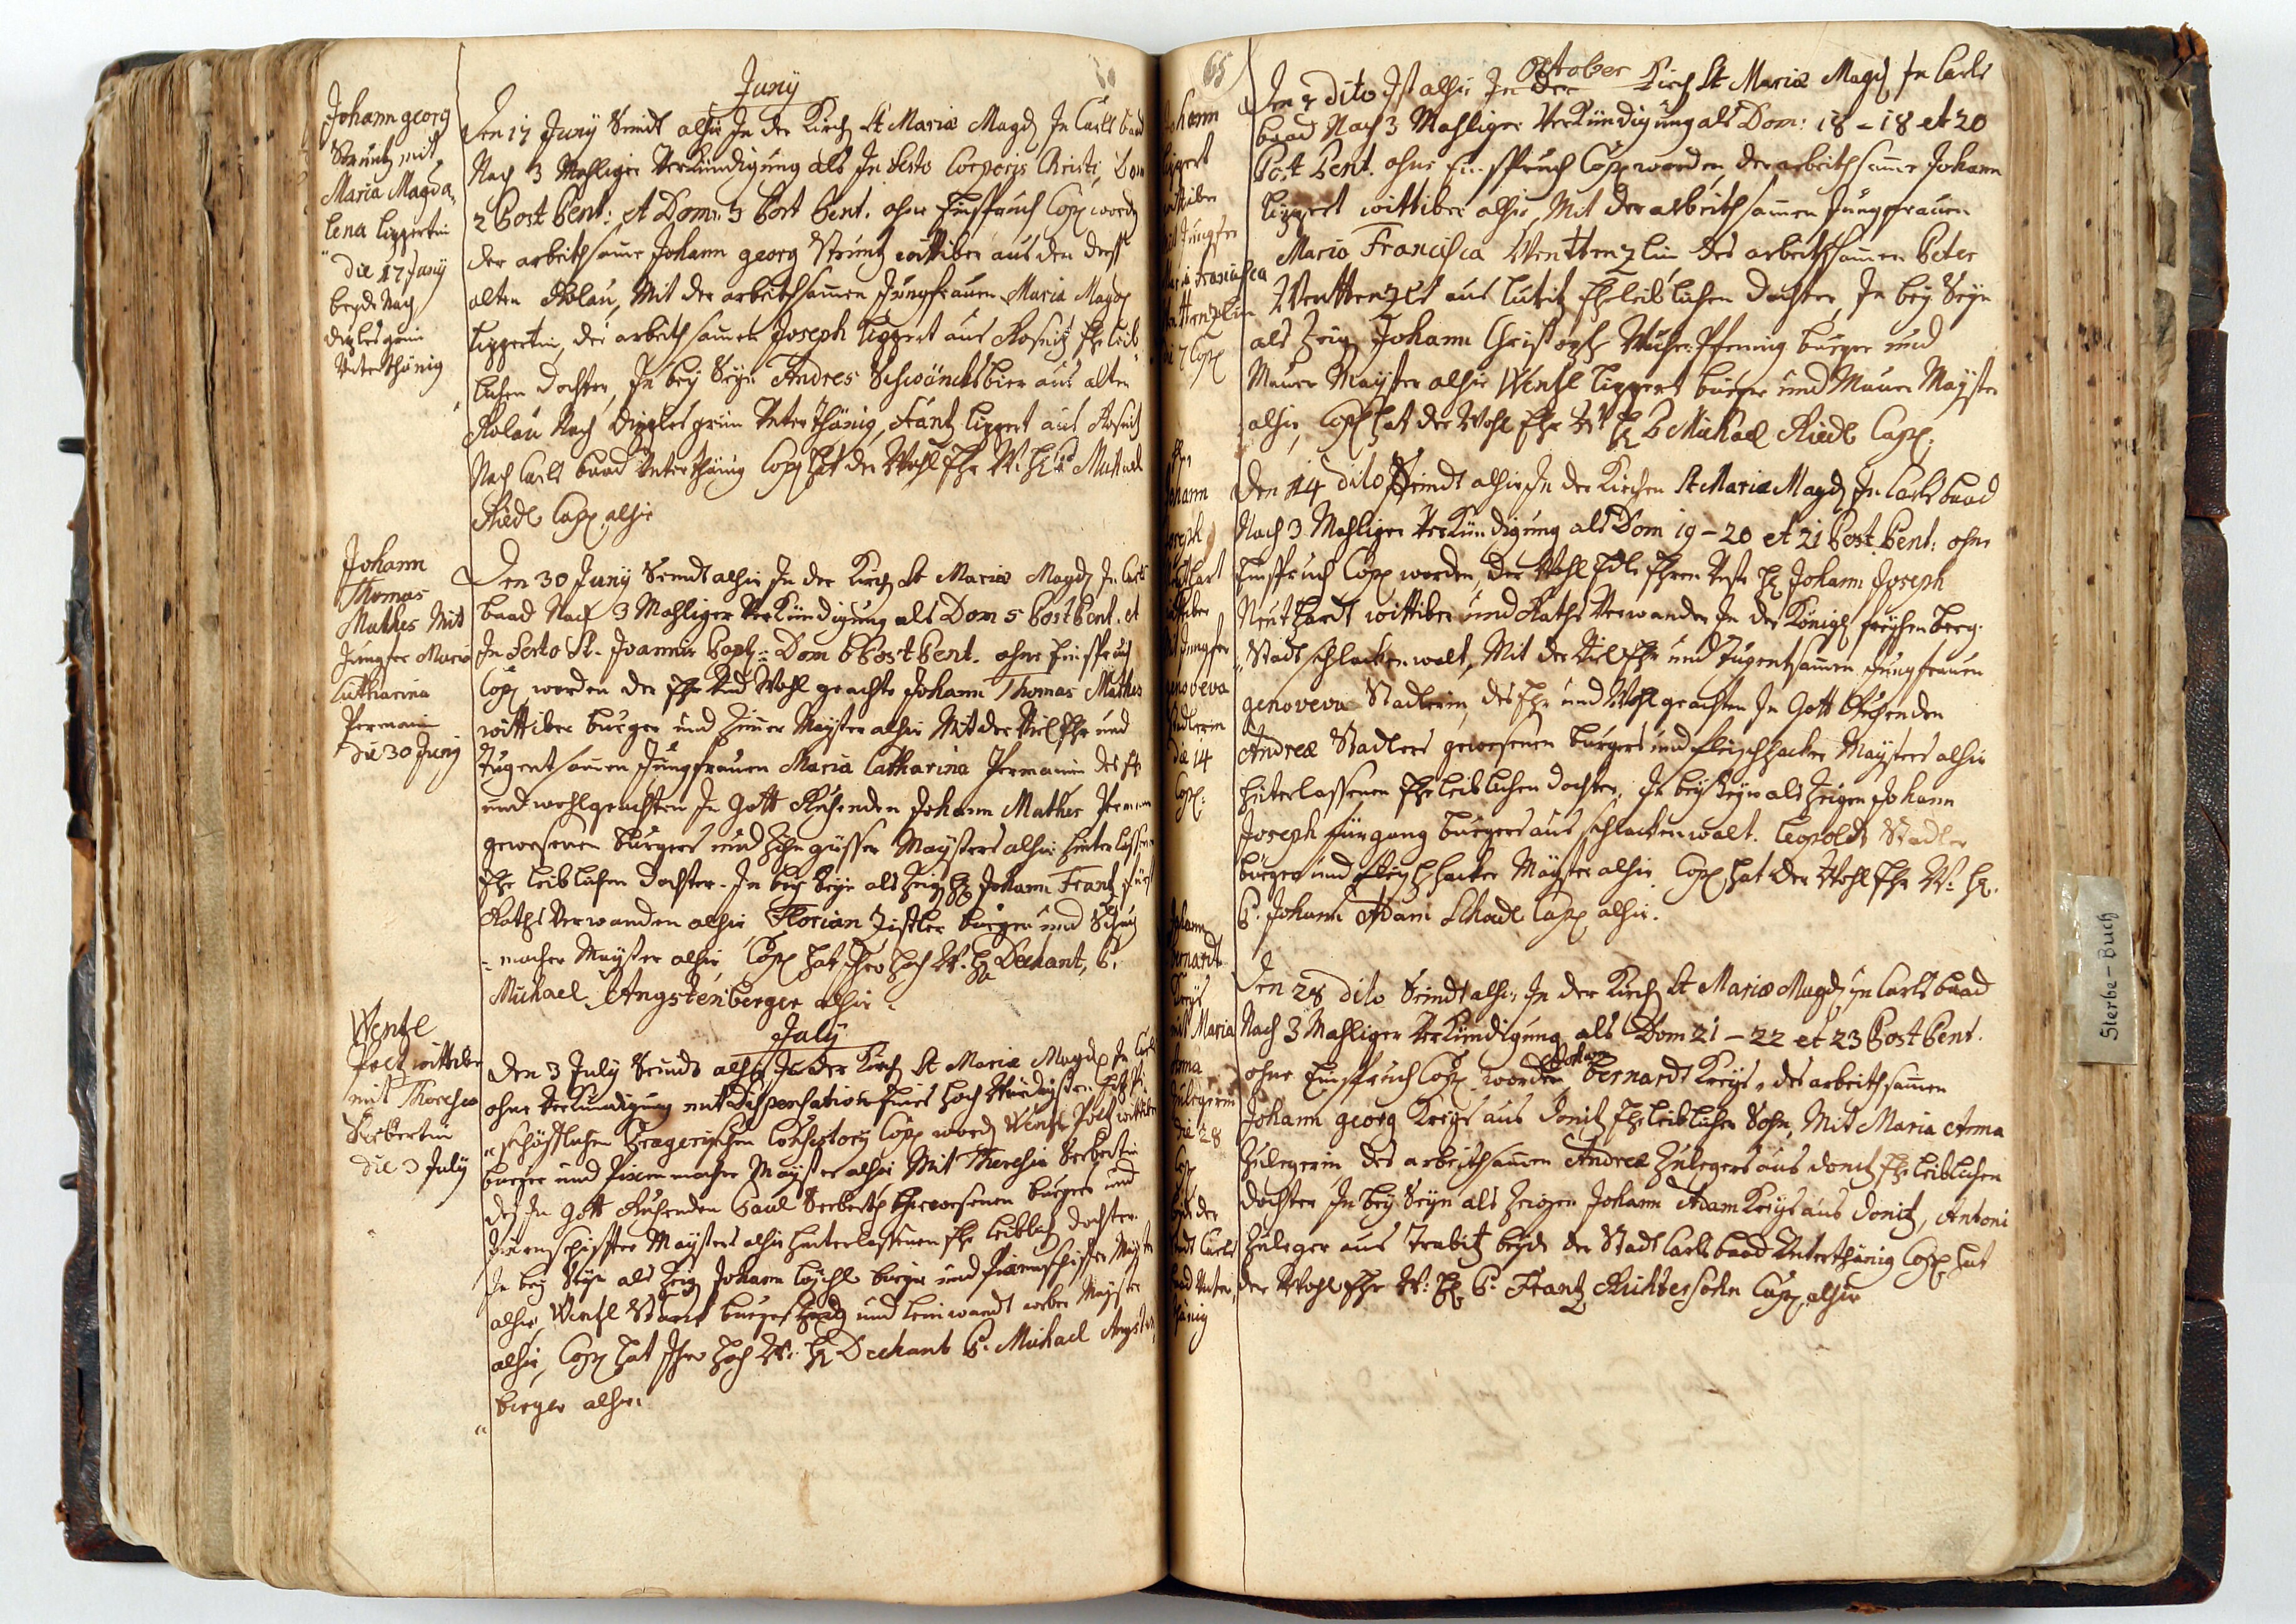 Juny
Johann georg
Struntz mit
Maria Magda„
lena Lippertin
die 17 Juny
beyde Nach
Unterthänig
Den 17 Juny Seindt alhir In der Kirch St Maria Magd In Carls baad
Nach 3 Mahliger Verkündigung als In Festo Corporis Christi, Dom
2 Post Pent: et Dom: 3 Post Pent. ohne Einspruch Cop worden
der arbeithsame Johann georg Struntz wittiber aus den dorff
alten Rolau, Mit der arbeithsamen Jungfrauen Maria Magd
Lippertin, des arbeithsamen Joseph Lippert aus Rosnitz Ehe leib
lichen dochter, In bey Seyn Andres Schwäncksbier aus alten
Rolau Nach Unterthänig, Frantz Lippert aus Rosnitz
Nach Carls baad Unterthänig Cop hat der Wohl Ehr W: H: P Michael
Riedl Capp: alhir
Johann
Thomas
Mathes Mit
Jungfer Maria
Catharina
Permanin
die 30 Juny
Den 30 Juny Seindt alhir In der Kirch St Maria Magd In Carls
baad Nach 3 Mahliger Verkündigung als Dom 5 Post Pent. et
In Festo St. Joannis Bapt: Dom 6 Post Pent. ohne Einspruch
Cop worden der Ehr und Wohl geachte Johann Thomas Mathes
wittiber burger und Zimer Mayster alhir Mit der Viel Ehr und
Tugentsamen Jungfrauen Maria Catharina Permanin des Ehr
und wohlgeachten In Gott Ruhenden Johann Mathes Perman
gewesenen burgers und Zihngüsser Maysters alhir hinterlassenen
Ehe leiblichen dochter. In bey Seyn als Zeig H: Johann Frantz
Raths Verwanden alhir Florian Zistler burger und Schuch
macher Mayster alhir, Cop hat Ihro Hoch W. H: Dechant, P.
Michael Angstenberger alhir.
July
Wentzl
Poltz wittiber
mit Theresia
Serbertin
die 3 July
Den 3 July Seindt alhir In der Kirch St Maria Magd In Carls
ohne Verkündigung mit Dispensation Eines Hoch Würdigsten Ertz bi
schöfflichen Pragerischen Consistory Cop word Wentzl Poltz wittiber
burger und macher Mayster alhir Mit Theresia Serbertin
des In Gott Ruhenden Paul Serberth gewesenen burgers und
Maysters alhir hinterlassenen Ehe leiblich dochter.
In bey Seyn als Zeig Johann Löschl burger und Mayster
alhir, Wentzl Stark burger und Leinwandt weber Mayster
alhir, Cop hat Ihro Hoch W: H: Dechant P. Michael Angsten„
berger alhir.
65
October
Johann
Lippert
wittiber
mit Jungfer
Maria Francisca
die 7 Cop
Den 7 dito Ist alhir In der Kirch St Maria Magd In Carls
baad Nach 3 Mahliger Verkündigung als Dom: 18 - 18 et 20
Post Pent. ohne Einspruch Cop worden, der arbeithsame Johann
Lippert wittiber alhir, Mit der arbeithsamen Jungfrauen
Maria Francisca Wenttenzlin des arbeithsamen Peter
Wenttenzls aus Lubitz Eheleiblichen dochter, In bey Seyn
als Zeig Johann Christoph Wucherpfenning burger und
Maurer Mayster alhir Wentzl Lippert burger und Maurer Mayster
alhir, Cop hat der Wohl Ehr W: H: P Michael Riedl Capp.
Johann
Joseph
wittiber
mit Jungfer
genoveva
Stadlerin
die 14
Cop:
Den 14 dito Seindt alhir In der Kirchen St Maria Magd In Carls baad
Nach 3 Mahliger Verkündigung als Dom 19 - 20 et 21 Post Pent: ohne
Einspruch Cop worden, der Wohl Edle Ehren Veste H: Johann Joseph
Neuthardt wittiber und Raths Verwander In der Königl freyhen berg
Stadt Schlackenwalt, Mit der Viel Ehr und Tugentsamen Jungfrauen
genoveva Stadlerin, des Ehr und Wohl geachten In Gott Ruhenden
Andrea Stadlers gewesenen burgers und fleischhacker Maysters alhir
hinterlassenen Eheleiblichen dochter, In bey Seyn als Zeigen Johann
Joseph burgers aus Schlackenwalt. Leopoldt Stadler
burger und fleischhacker Mayster alhir. Cop hat der Wohl Ehr W: H:
P. Johann Adam Schadl Capp alhir.
Johann
Bernardt
Kreys
mit Maria
Anna
Zulegerin
die 28
Cop
beyde der
Stadt Carls
baad Unter„
thänig
Den 28 dito Seindt alhir In der Kirch St Maria Magd in Carls baad
Nach 3 Mahliger Verkündigung als Dom 21 - 22 et 23 Post Pent.
ohne Einspruch Cop worden Johann bernardt Kreys, des arbeithsamen
Johann georg Kreys aus donitz Eheleiblicher Sohn, Mit Maria Anna
Zulegerin, des arbeithsamen Andrea Zulegers aus donitz Eheleiblichen
dochter In bey Seyn als Zeigen Johann Adam Kreys aus donitz, Antoni
Zuleger aus Trabitz beyde der Stadt Carls baad Unterthänig Cop hat
der Wohl Ehr W: H: P. Frantz Richtersohn Capp. alhir
Sterbe-Buch